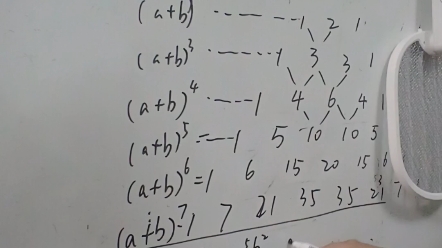 (a+b) ------- 1 2 1
(a+b)³ ------- 1 3 3 1
(a+b)⁴ ----- 1 4 6 4 1
(a+b)⁵ = -- 1 5 10 10 5
(a+b)⁶ = 1 6 15 20 15 6
(a+b)⁷ - 1 7 21 35 35 21 7
5b²